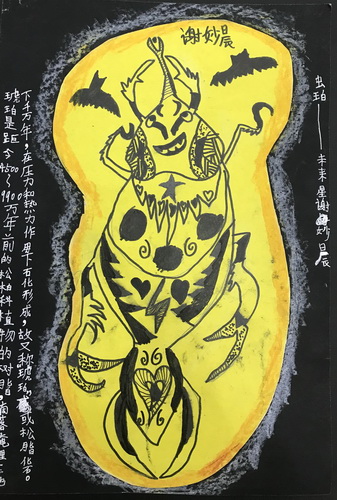 谢妙晨
虫珀——未来星谢妙晨
琥珀是距今4500~9900万年前的松柏科植物的对脂，滴落掩埋
下千万年，在压力和热力作用下石化形成，故又称琥珀或松脂化石。